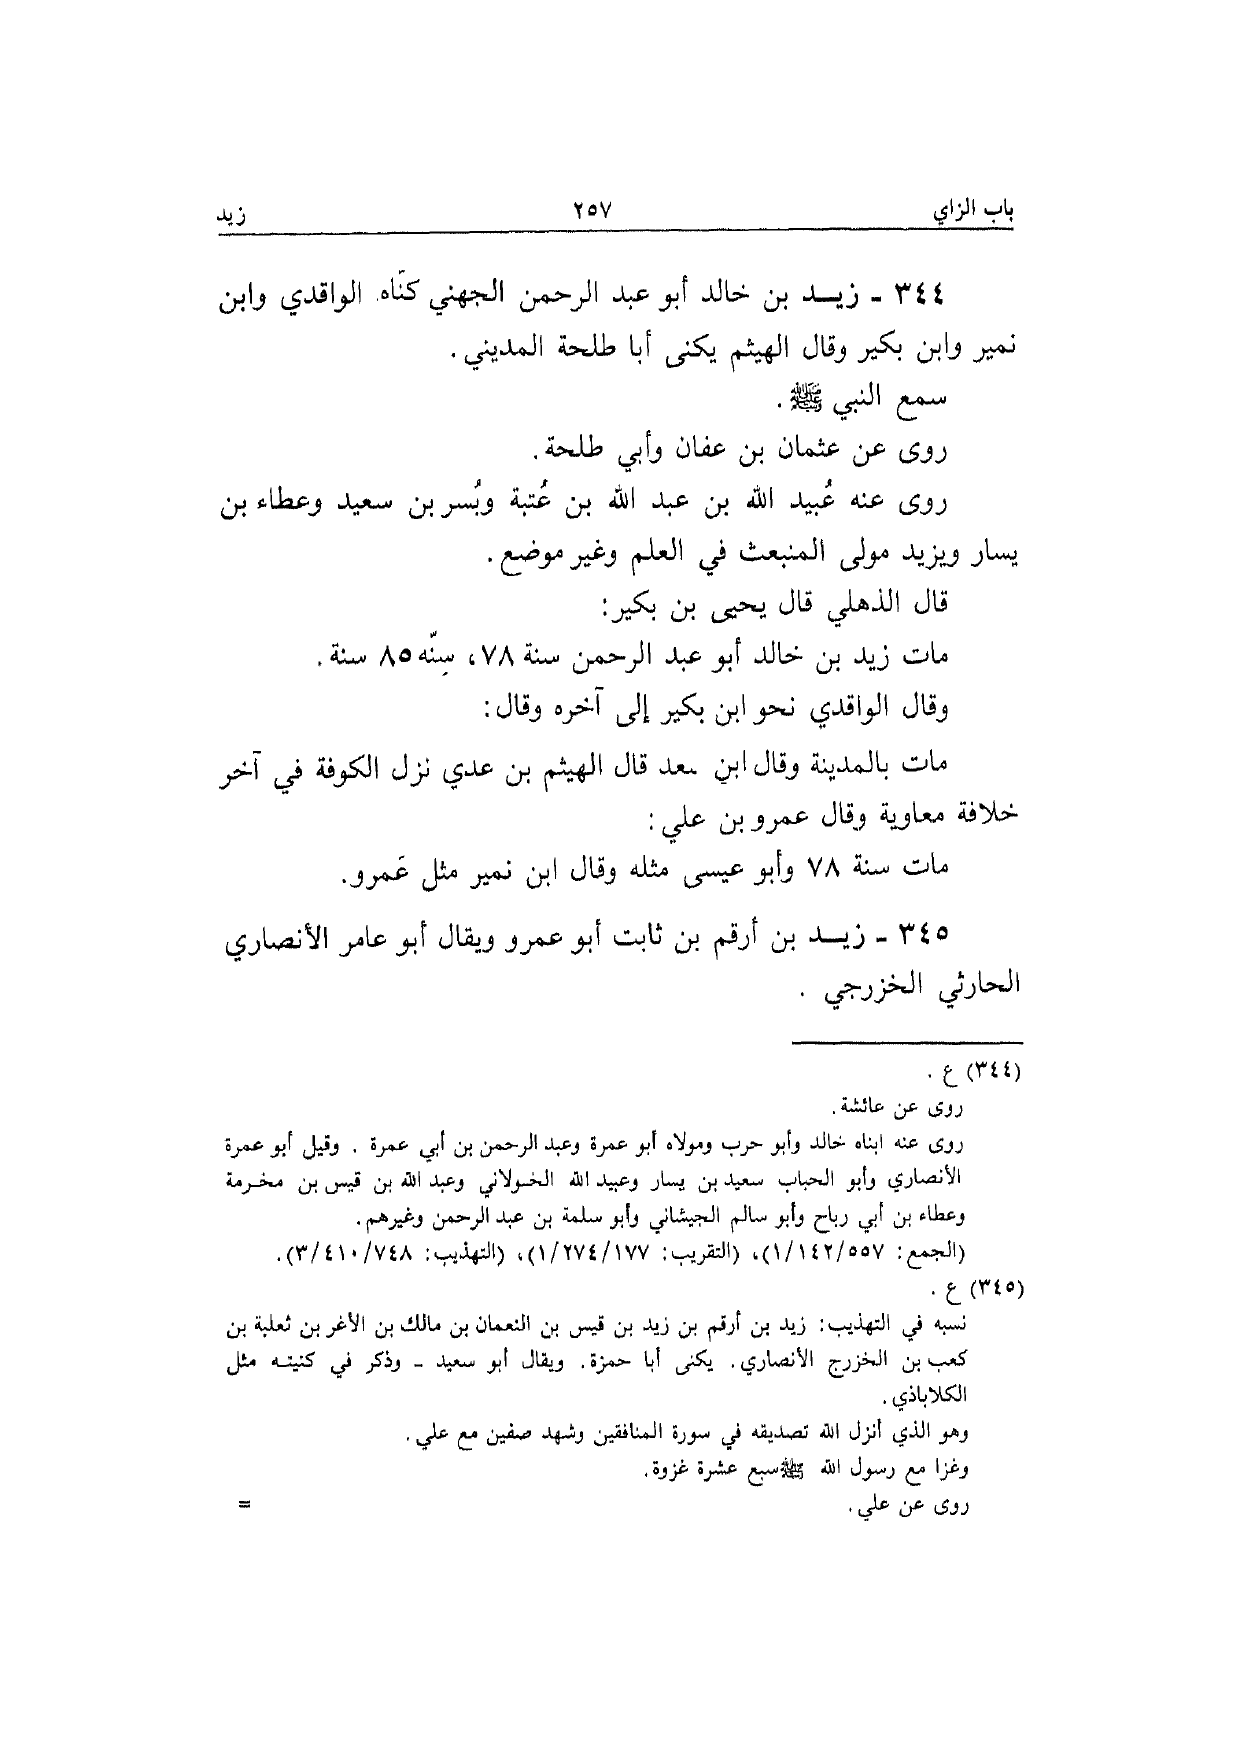 باب الزاي ٢٥٧ زيد
٣٤٤ - زيـــد بن خالد أبو عبد الرحمن الجهني كنّاه الواقدي وابن
نمير وابن بكير وقال الهيثم يكنى أبا طلحة المديني.
سمع النبي ﷺ.
روى عن عثمان بن عفان وأبي طلحة.
روى عنه عُبيد الله بن عبد الله بن عُتبة وبُسر بن سعيد وعطاء بن
يسار ويزيد مولى المنبعث في العلم وغير موضع.
قال الذهلي قال يحيى بن بكير:
مات زيد بن خالد أبو عبد الرحمن سنة ٧٨، سِنّه ٨٥ سنة.
وقال الواقدي نحو ابن بكير إلى آخره وقال:
مات بالمدينة وقال ابن سعد قال الهيثم بن عدي نزل الكوفة في آخر
خلافة معاوية وقال عمرو بن علي:
مات سنة ٧٨ وأبو عيسى مثله وقال ابن نمير مثل عَمرو.
٣٤٥ - زيـــد بن أرقم بن ثابت أبو عمرو ويقال أبو عامر الأنصاري
الحارثي الخزرجي .
(٣٤٤) ع .
روى عن عائشة.
روى عنه ابناه خالد وأبو حرب ومولاه أبو عمرة وعبد الرحمن بن أبي عمرة . وقيل أبو عمرة
الأنصاري وأبو الحباب سعيد بن يسار وعبيد الله الخولاني وعبد الله بن قيس بن مخرمة
وعطاء بن أبي رباح وأبو سالم الجيشاني وأبو سلمة بن عبد الرحمن وغيرهم.
(الجمع: ١/١٤٢/٥٥٧)، (التقريب: ١/٢٧٤/١٧٧)، (التهذيب: ٣/٤١٠/٧٤٨).
(٣٤٥) ع .
نسبه في التهذيب: زيد بن أرقم بن زيد بن قيس بن النعمان بن مالك بن الأغر بن ثعلبة بن
كعب بن الخزرج الأنصاري. يكنى أبا حمزة. ويقال أبو سعيد - وذكر في كنيته مثل
الكلاباذي.
وهو الذي أنزل الله تصديقه في سورة المنافقين وشهد صفين مع علي.
وغزا مع رسول الله ﷺ سبع عشرة غزوة.
روى عن علي. =